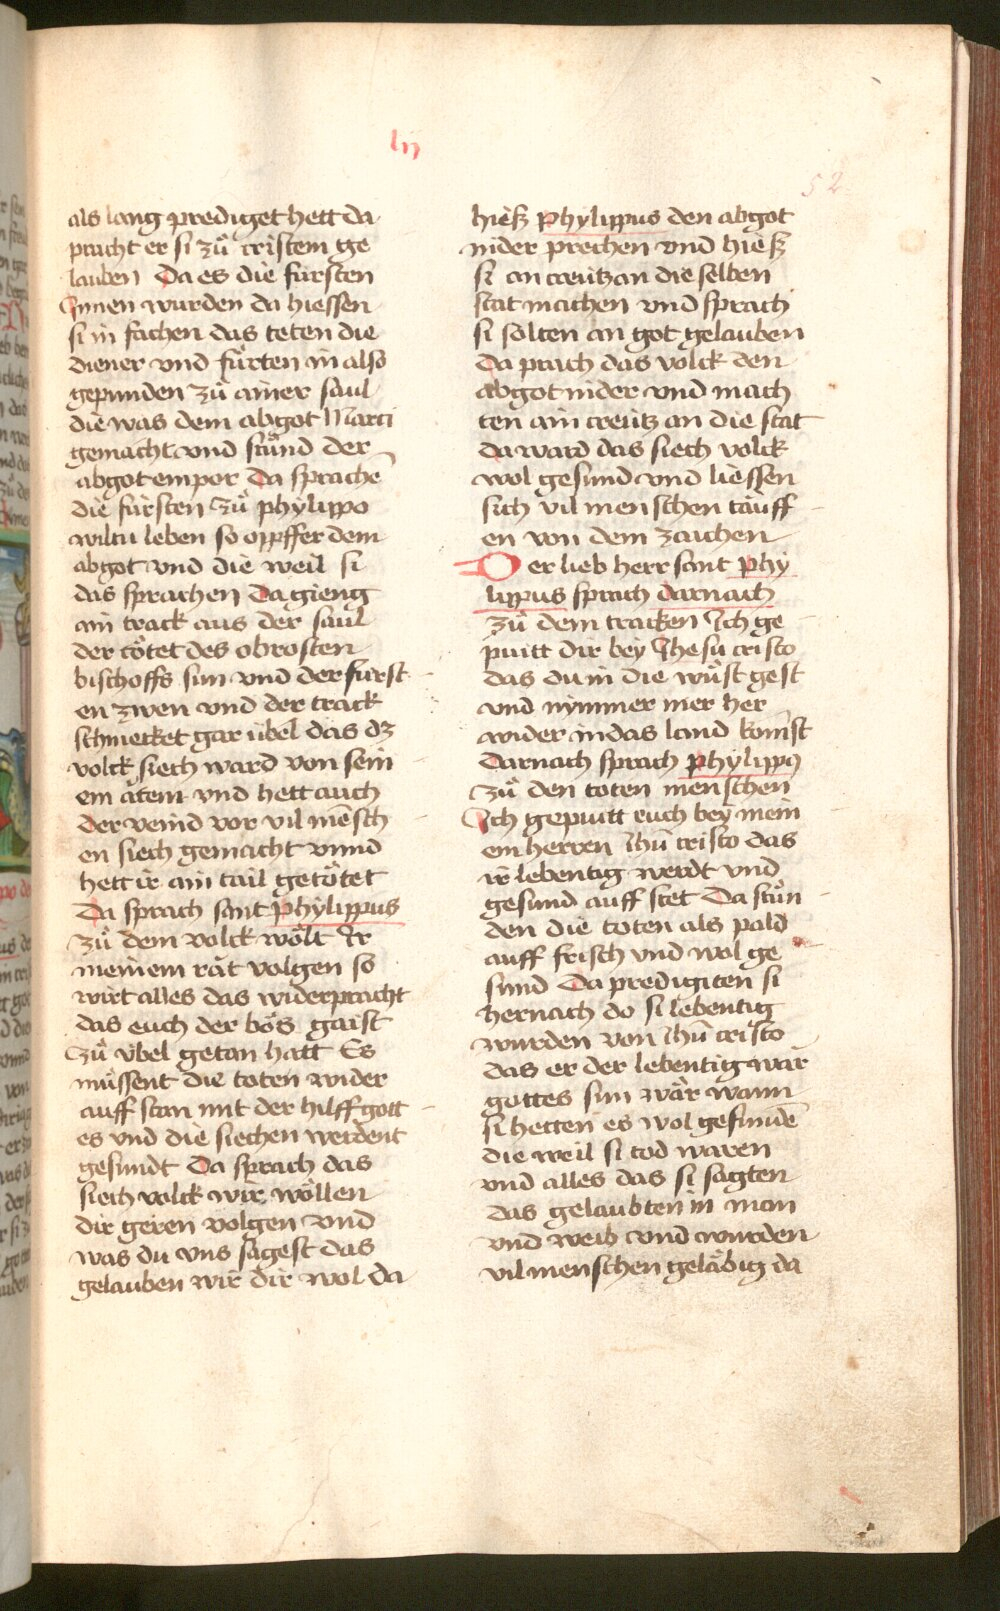 lij
52
als lang prediget hett da
pracht er si zů cristem ge
lauben Da es die fürsten
Innen wurden da hiessen
si in fachen das teten die
diener vnd fürten in also
gepunden zů ainer saul
die was dem abgot Marti
gemacht vnd stůnd der
abgot empor Da sprachē
die fürsten zů phylippo
wiltu leben so oppffer dem
abgot vnd die weil si
das sprachen Da gieng
ain track aus der saul
der tötet des obrosten
bischoffs sun vnd der fürst
en zwen vnd der track
schmecket gar übel das dz
volck siech ward von sein
em ätem vnd hett auch
der veind vor vil mēsch
en siech gemacht vnnd
hett ir ain tail getötet
Da sprach sant Phylippus
zů dem volck wölt Ir
meinem rät volgen so
wirt alles das widerpracht
das euch der bös gaist
zů übel getan hatt Es
müssent die toten wider
auff stan mit der hilff gott
es vnd die siechen werdent
gesundt Da sprach das
siech volck wir wöllen
dir geren volgen vnd
was du vns sagest das
gelauben wir dir wol da
hieß Phylippus den abgot
nider prechen vnd hieß
si an creütz an die selben
stat machen vnd sprach
si solten an got gelauben
Da prach das volck den
abgot nider vnd mach
ten ain creütz an die stat
da ward das siech volck
wol gesund vnd liessen
sich vil menschen täuff
en von dem zaichen
Der lieb herr sant Phy
lippus sprach darnach
zů dem tracken Ich ge
puitt dir bey Jhesu cristo
das du in die wüst gest
vnd nymmer mer her
wider in das land komst
Darnach sprach Phylippꝰ
zů den toten menschen
Ich gepuitt euch bey mein
em herren Jhū cristo das
ir lebentig werdt vnd
gesund auff stet Da stůn
den die toten als pald
auff frisch vnd wol ge
sund Da predigiten si
hernach do si lebentig
wurden von Jhū cristo
das er der lebentig war
gottes sun wär wann
si hetten es wol gefundē
die weil si tod waren
vnd alles das si sagten
das gelaubten in man
vnd weib vnd wurden
vil menschen geläbig da